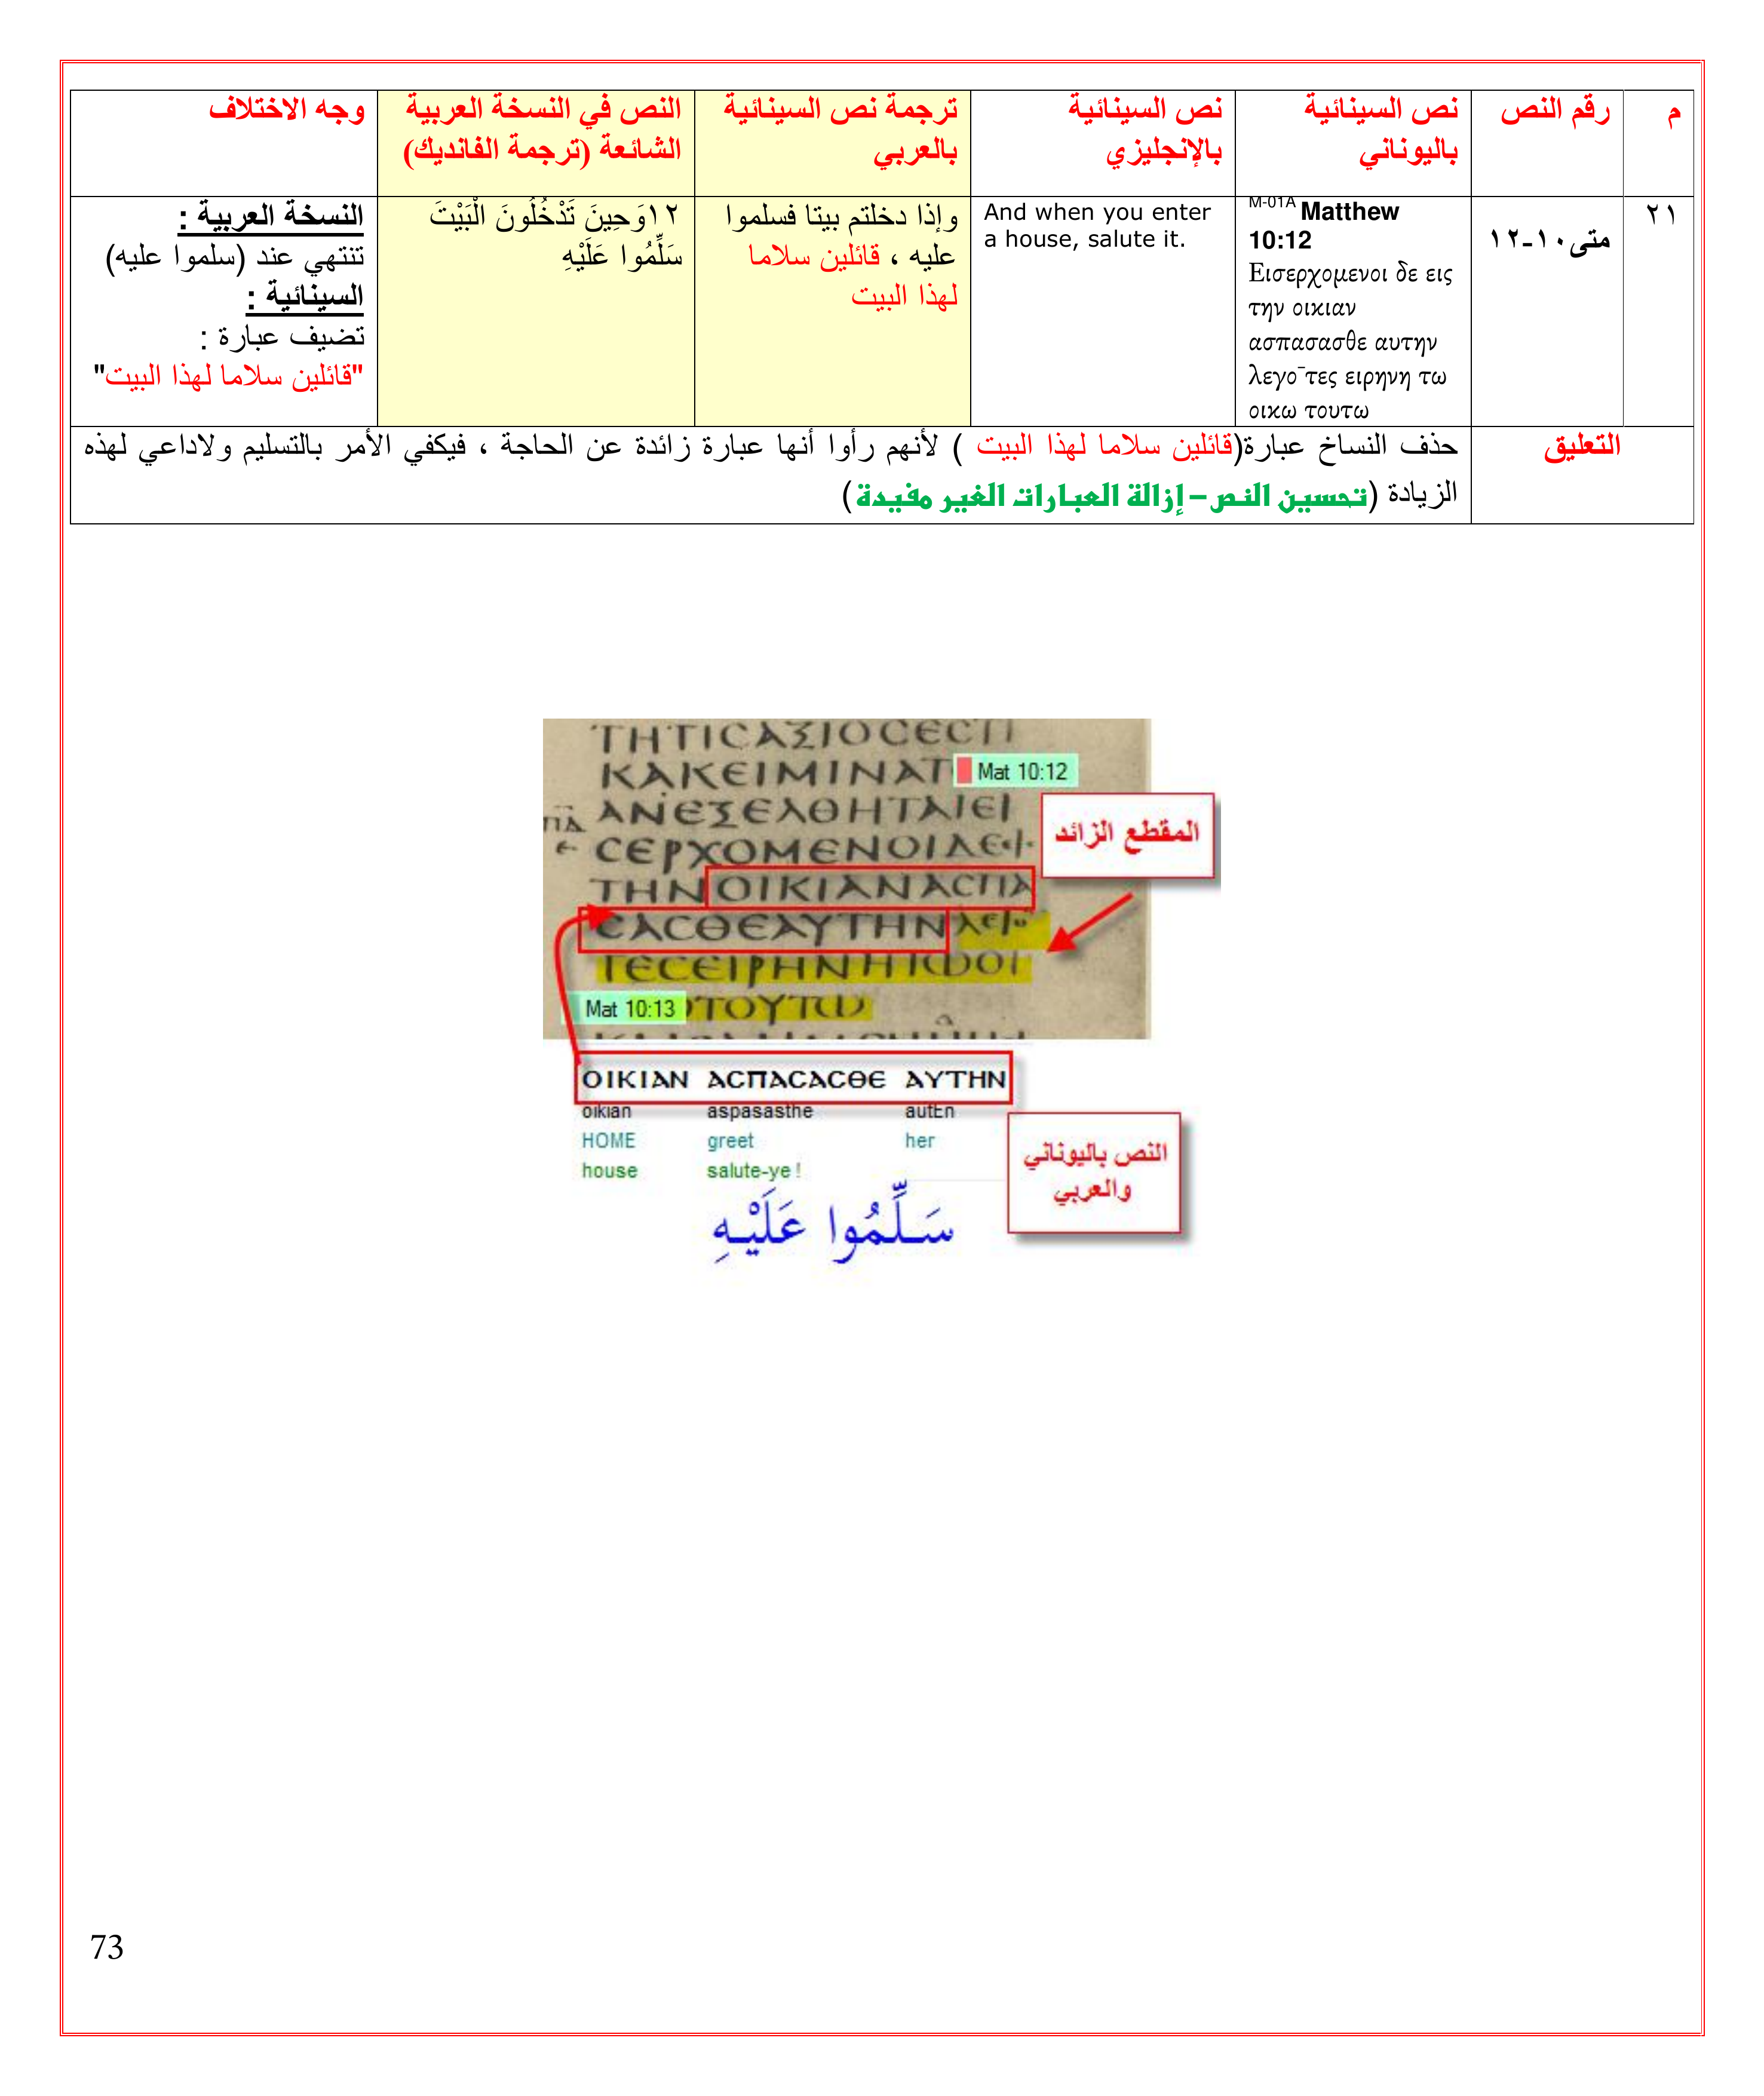 م
رقم النص
نص السينائية
باليوناني
نص السينائية
بالإنجليزي
ترجمة نص السينائية
بالعربي
النص في النسخة العربية
الشائعة (ترجمة الفانديك)
وجه الاختلاف
٢١
متى١٠-١٢
M-01A Matthew
10:12
Εισερχομενοι δε εις
την οικιαν
ασπασασθε αυτην
λεγο¯τες ειρηνη τω
οικω τουτω
And when you enter
a house, salute it.
وإذا دخلتم بيتا فسلموا
عليه ، قائلين سلاما
لهذا البيت
١٢وَحِينَ تَدْخُلُونَ الْبَيْتَ
سَلِّمُوا عَلَيْهِ
النسخة العربية :
تنتهي عند (سلموا عليه)
السينائية :
تضيف عبارة :
"قائلين سلاما لهذا البيت"
التعليق
حذف النساخ عبارة(قائلين سلاما لهذا البيت ) لأنهم رأوا أنها عبارة زائدة عن الحاجة ، فيكفي الأمر بالتسليم ولاداعي لهذه
الزيادة (تحسين النص – إزالة العبارات الغير مفيدة)
ΤΗΤΙCΑΞΙΟCΕCΤΙ
ΚΑΚΕΙΜΙΝΑΤ
Mat 10:12
ΑΝΕΞΕΛΘΗΤΑΙΕΙ
CΕΡΧΟΜΕΝΟΙΔΕ
المقطع الزائد
ΤΗΝΟΙΚΙΑΝΑCΠΑ
CΑCΘΕΑΥΤΗΝΛΕ
ΤΕCΕΙΡΗΝΗΤΩΟΙ
Mat 10:13
ΤΟΥΤΩ
ΟΙΚΙΑΝ ΑCΠΑCΑCΘΕ ΑΥΤΗΝ
oikian aspasasthe autEn
HOME greet her
house salute-ye !
النص باليوناني
والعربي
سَلِّمُوا عَلَيْهِ
73